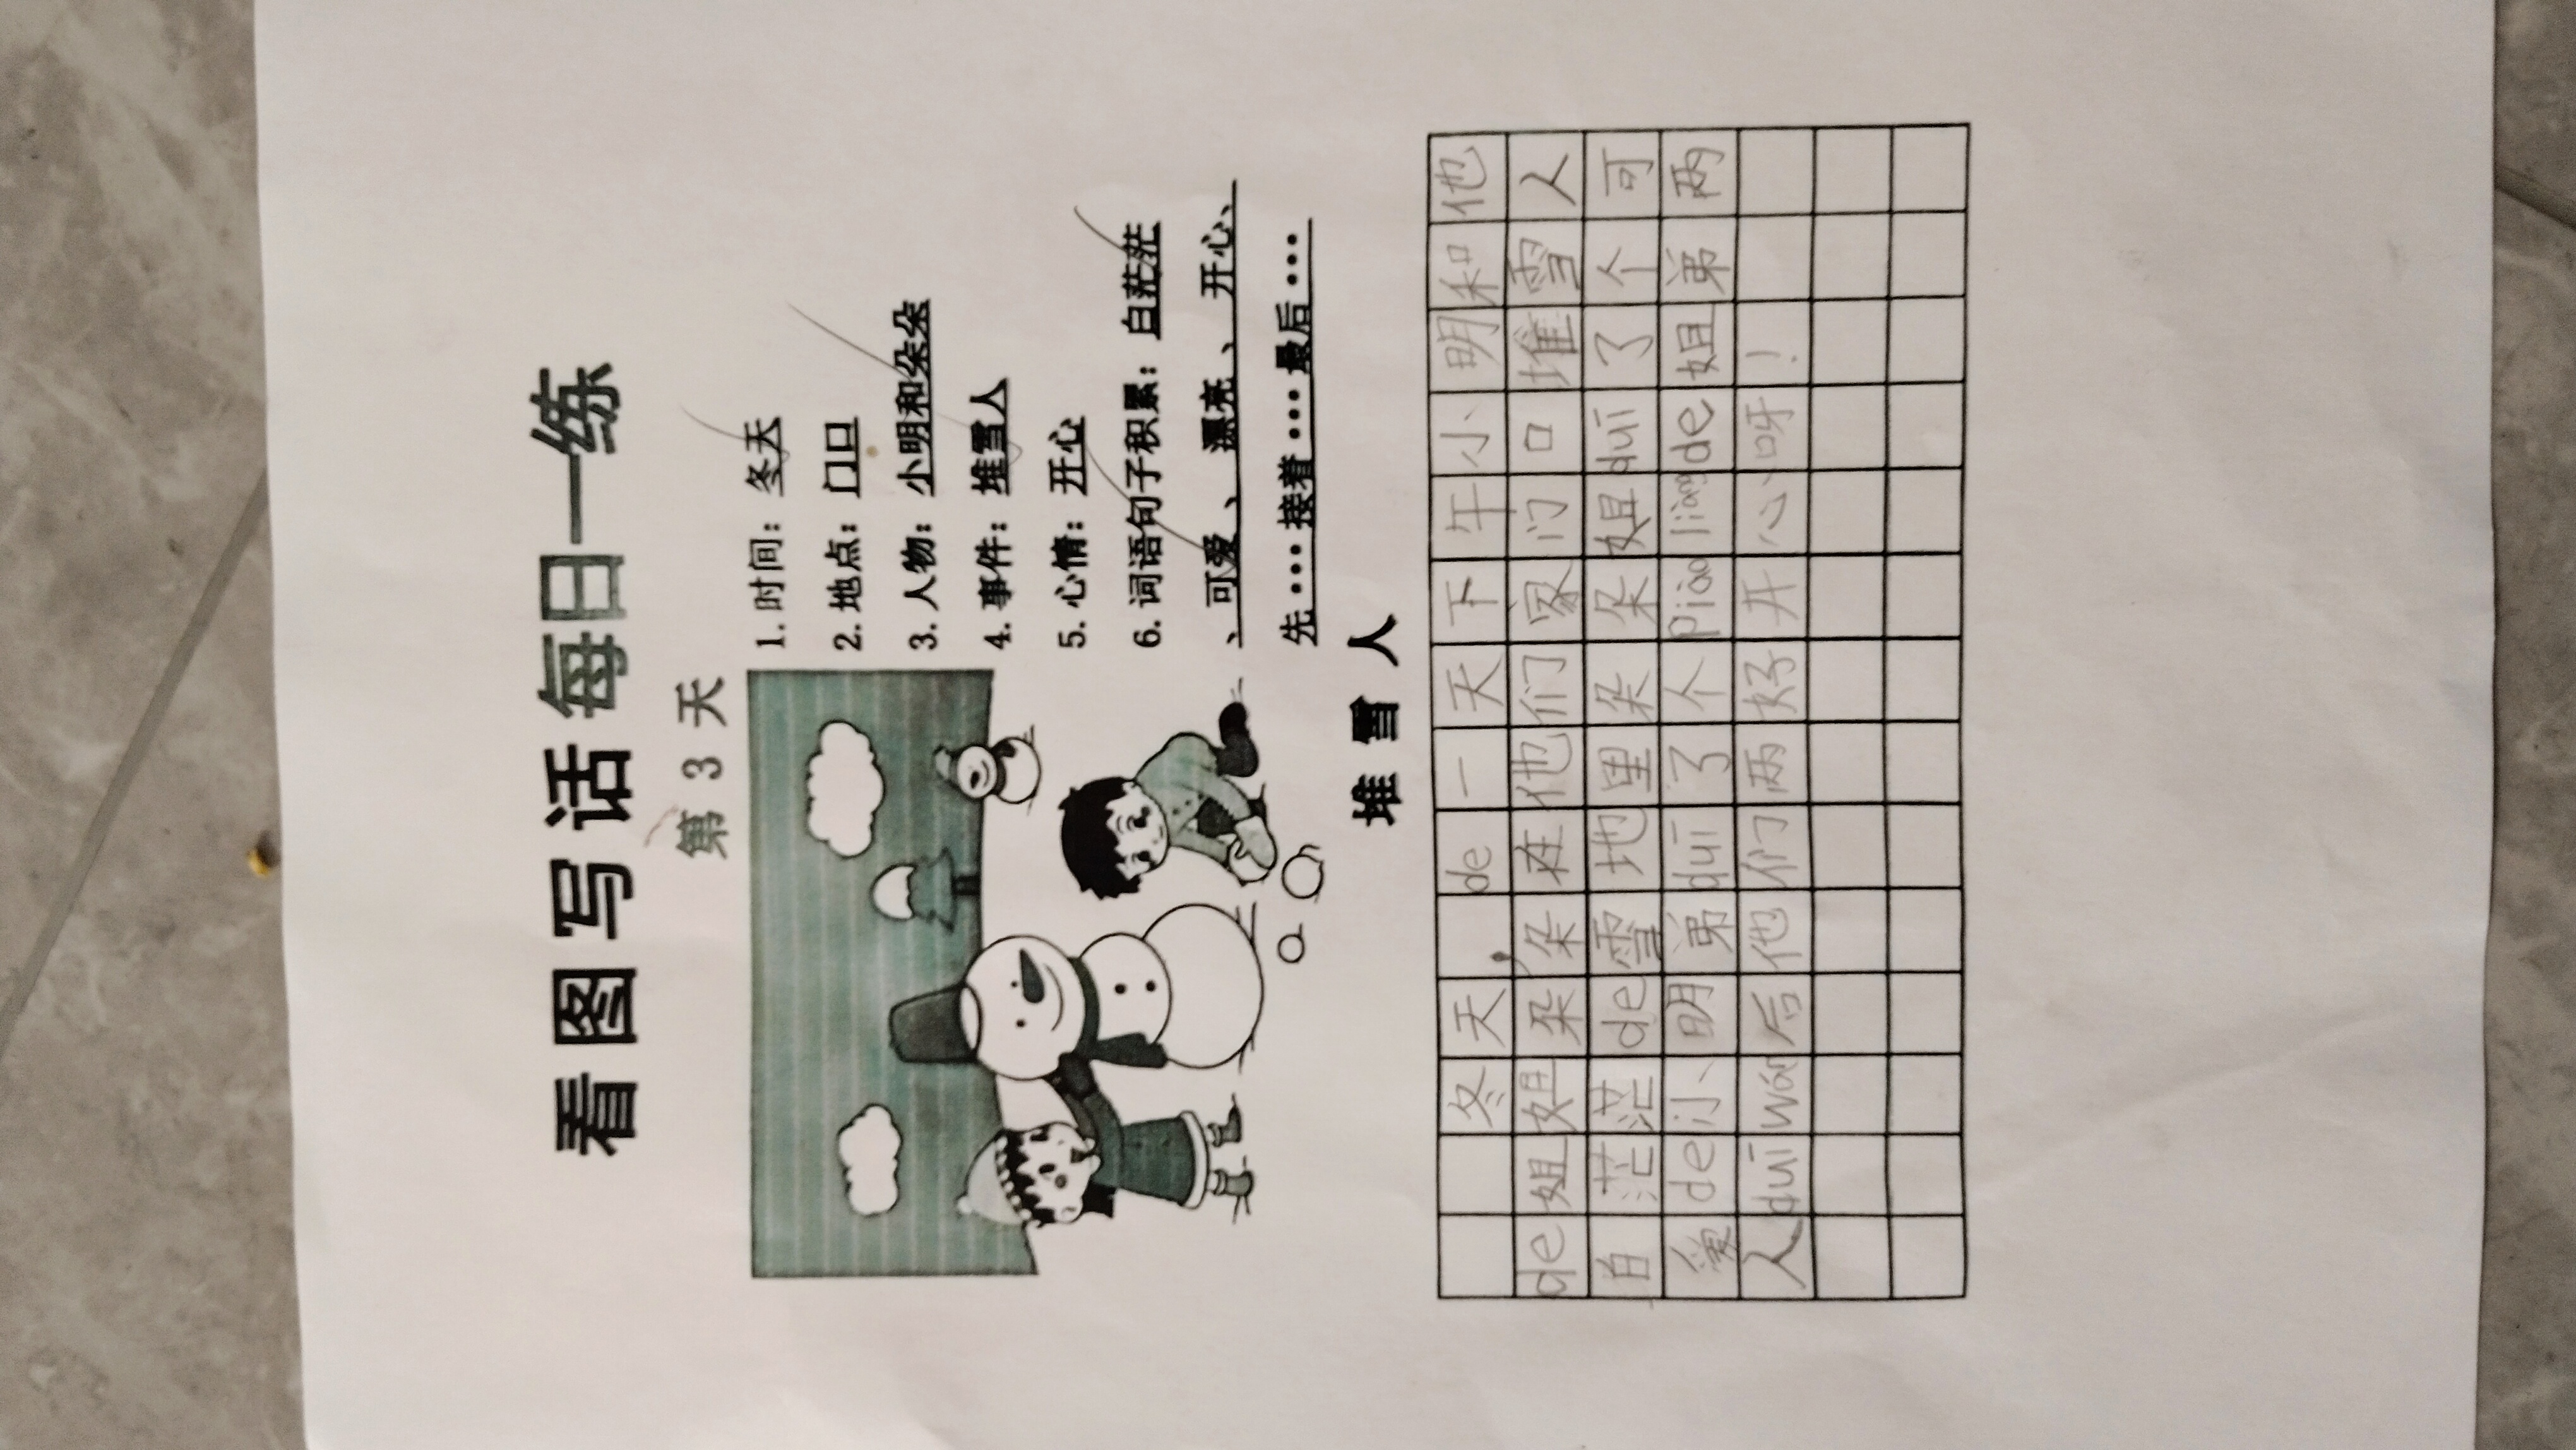 看图写话每日一练
第 3 天
1. 时间：冬天
2. 地点：门口
3. 人物：小明和朵朵
4. 事件：堆雪人
5. 心情：开心
6. 词语句子积累：白茫茫
、可爱、、漂亮、、开心、
先……接着……最后……
堆 雪 人
冬天，de一天下午小明和他
de姐姐朵朵在他们家门口堆雪人
白茫茫de雪地里朵朵姐duī了个可
爱de小明弟duī了个piàoliangde姐弟两
人duīwán后他们两好开心呀！